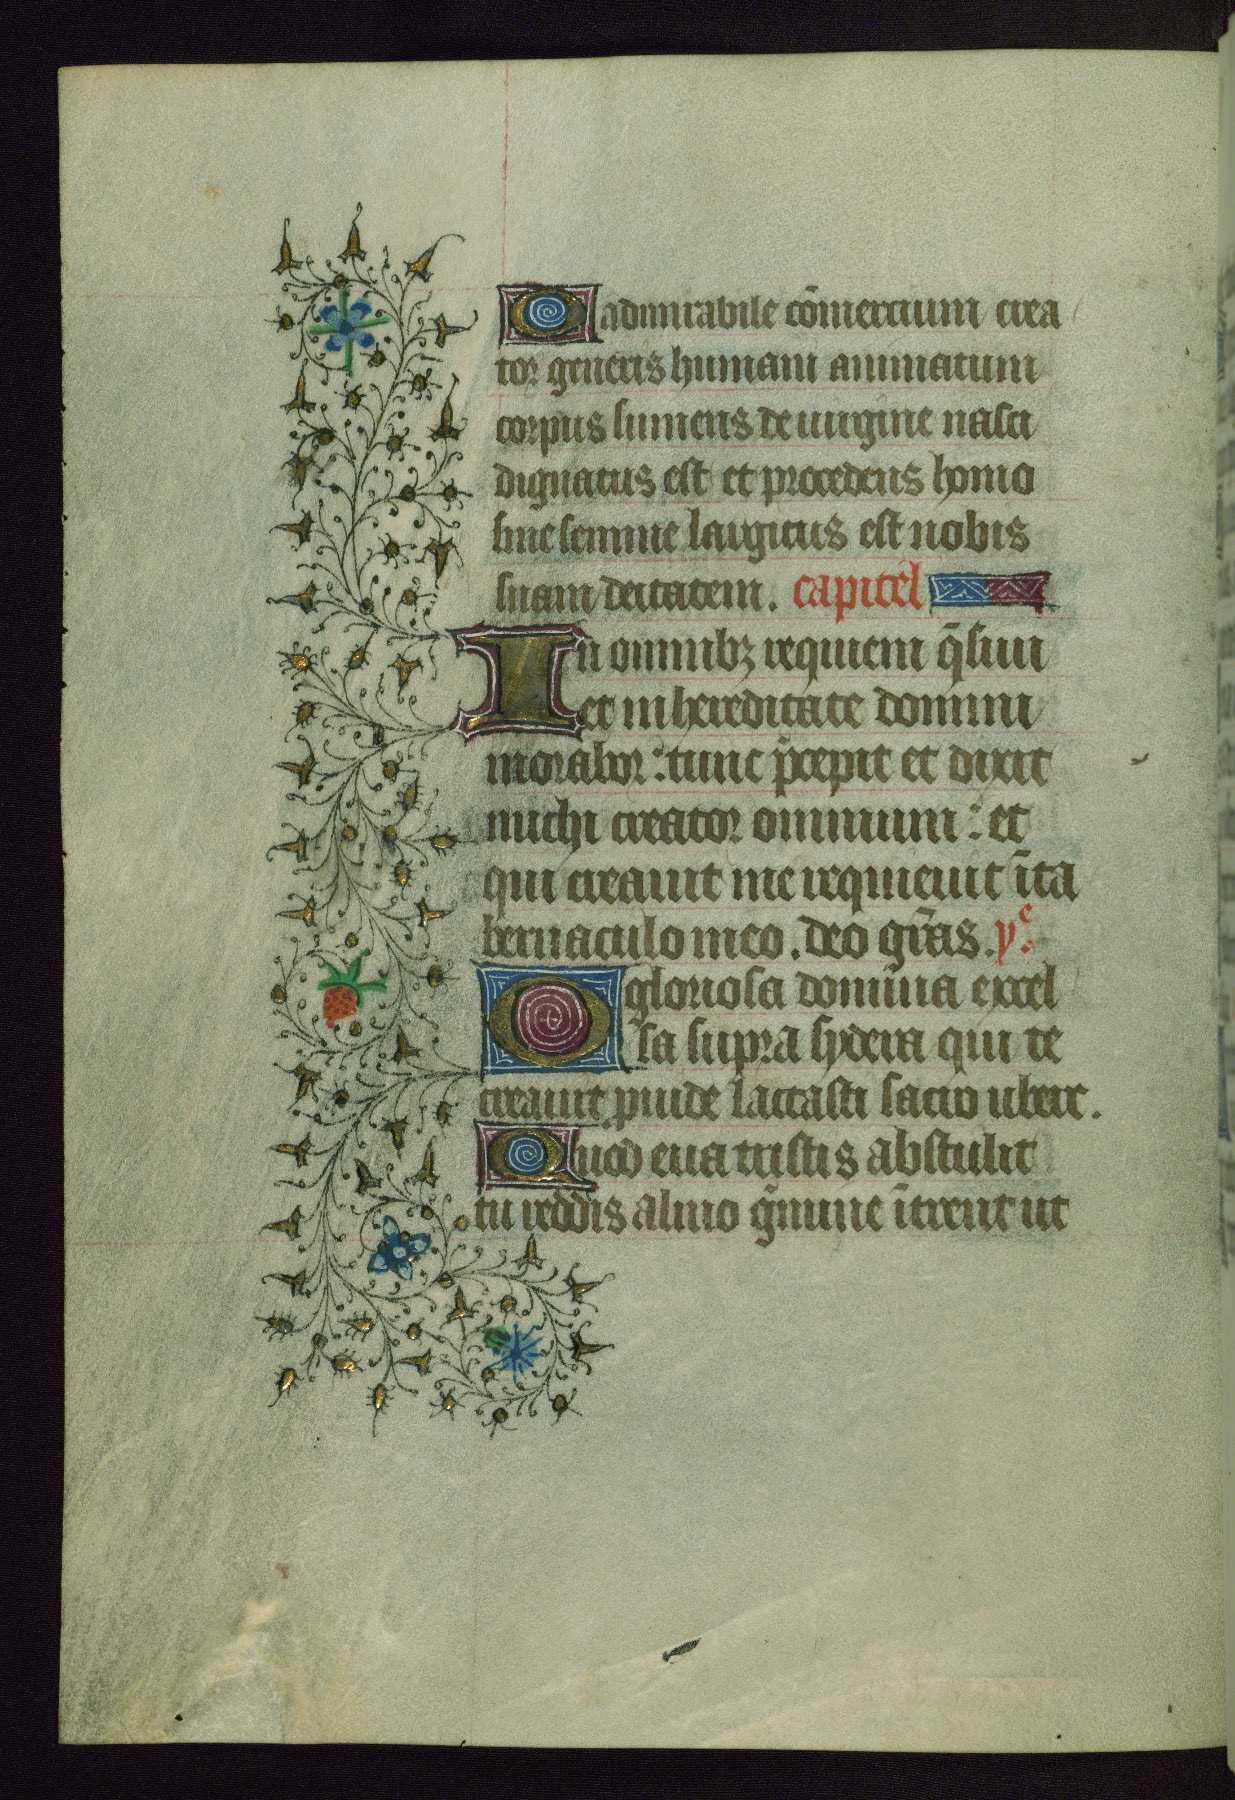 O admirabile cōmercium crea
tor generis humani animatum
corpus sumens de uirgine nasci
dignatus est et procedens homo
sine semine largitus est nobis
suam deitatem. capitel
In omnibꝫ requiem q̄siui
et in hereditate domini
morabor : tunc p̄cepit et dixit
michi creator omnium : et
qui creauit me requieuit īta
bernaculo meo . deo gr̄as . yͤ.
O gloriosa domina excel
sa supra sydera qui te
creauit puide lactasti sacro ubere .
Quod eua tristis abstulit
tu reddis almo ḡmine ītrent ut